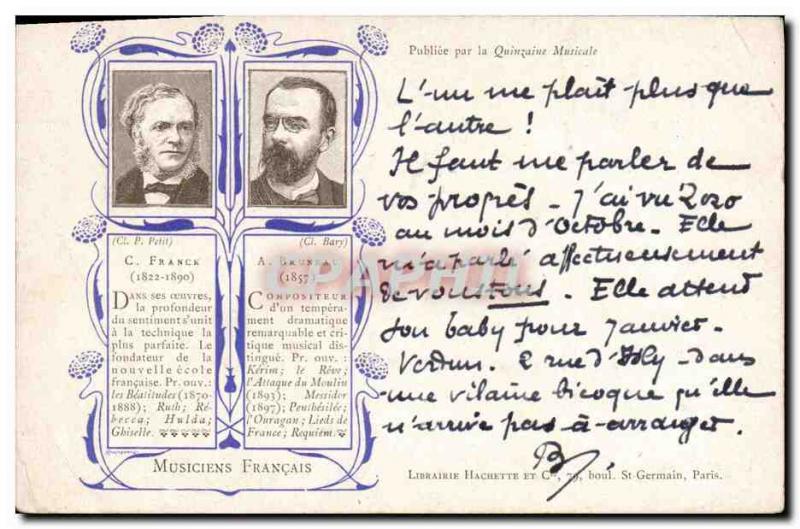 Publiée par la Quinzaine Musicale
(Cl. P. Petit)
C. FRANCK
(1822-1890)
DANS ses œuvres,
la profondeur
du sentiment s'unit
à la technique la
plus parfaite. Le
fondateur de la
nouvelle école
française. Pr. ouv.:
les Béatitudes (1870-
1888); Ruth; Ré-
becca; Hulda;
Ghiselle.
(Cl. Bary)
A. BRUNEAU
(1857)
COMPOSITEUR
d'un tempéra-
ment dramatique
remarquable et cri-
tique musical dis-
tingué. Pr. ouv. :
Kérim; le Rêve;
l'Attaque du Moulin
(1893); Messidor
(1897); Penthésilée;
l'Ouragan; Lieds de
France; Requiem.
MUSICIENS FRANÇAIS
L'un me plaît plus que
l'autre !
Il faut me parler de
vos progrès - J'ai vu Zozo
au mois d'Octobre. Elle
m'a parlé affectueusement
de vous tous. Elle attend
son baby pour janvier.
Verdun. 2 rue d' - dans
une vilaine bicoque qu'elle
n'arrive pas à arranger.
B
LIBRAIRIE HACHETTE ET Cie, 79, boul. St-Germain, Paris.
CPAPHIL